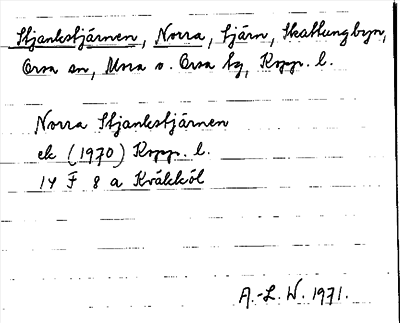 Stjankstjärnen, Norra, tjärn, Skattungbyn,
Orsa sn, Mora o. Orsa tg, Kopp. l.
Norra Stjankstjärnen
ek (1970) Kopp. l.
14 F 8 a Kvälcköl
A.-L. W. 1971.